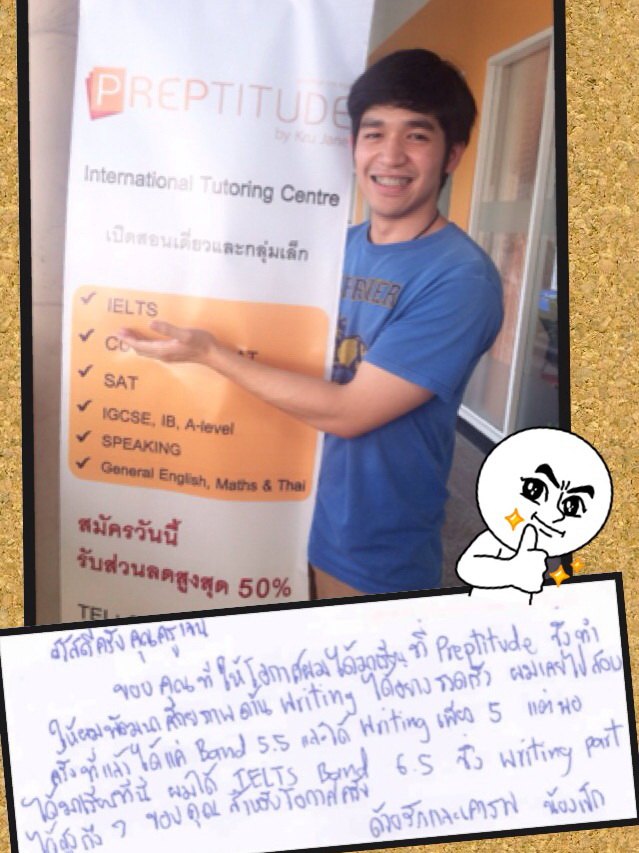 PREPTITUDE
by Kru Jane
International Tutoring Centre
เปิดสอนเดี่ยวและกลุ่มเล็ก
✓ IELTS
✓ CO AT
✓ SAT
✓ IGCSE, IB, A-level
✓ SPEAKING
✓ General English, Maths & Thai
สมัครวันนี้
รับส่วนลดสูงสุด 50%
TEL
สวัสดีครับ คุณครูเจน
ขอบคุณที่ให้โอกาสผมได้มาเรียนที่ Preptitude ซึ่งทำ
ให้ผมพัฒนาศักยภาพด้าน Writing ได้อย่างรวดเร็ว ผมเคยไปสอบ
ครั้งที่แล้วได้แค่ Band 5.5 และได้ Writing เพียง 5 แต่พอ
ได้มาเรียนที่นี่ ผมได้ IELTS Band 6.5 ซึ่ง writing part
ได้สูงถึง 7 ขอบคุณสำหรับโอกาสครับ
ด้วยรักและเคารพ น้อง